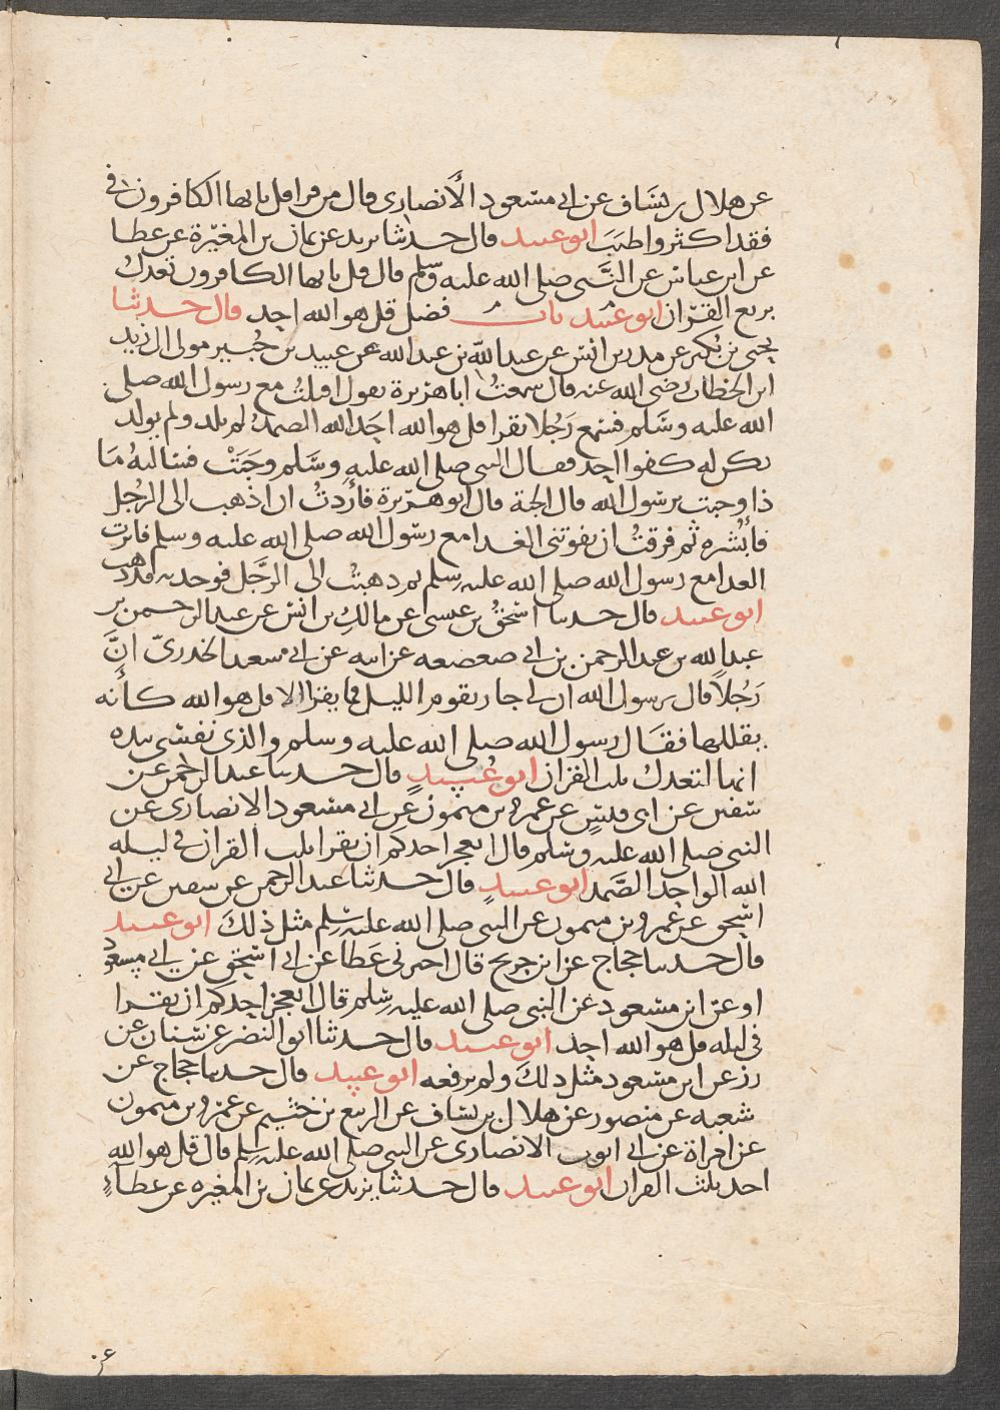 عن هلال بن يساف عن ابى مسعود الأنصارى قال من قرا قل يا يها الكافرون فى
فقد اكثر واطيَبَ ابو عبيد قال حدثنا يزيد عن يمان بن المغيّرة عن عطا
عن ابن عباس عن النَّبى صلى الله عليه وسّلم قال قل يا يها الكافرون تعدل
بربع القرّان ابو عبيد باب فضل قل هو الله احد قال حدثنا
يحيى بن بُكير عن ملد بن انس عن عبد الله بن عبد الله عن عبيد بن حُنير مولى ال زيد
ابن الخطاب رضى الله عنه قال سمعتُ ابا هريرة يقول اقبلتُ مع رسول الله صلى
الله عليه وسَّلم فسَمع رَجُلا يقرا قل هو الله احَد الله الصمدُ لم يلد ولم يولد
يكن له كفوا احد فقال النبى صلى الله عليهِ وسَّلم وجَبَتْ فسَالتهُ مَا
ذا وجبت يرسول الله قال الجنة قال ابو هرّيرة فأَردتُ ان اذهب الى الرَّجل
فأبُشره ثم فرقتُ ان يفوتنى الغدا مع رسوُل الله صلى الله عليه وسلم فاثرت
الغدا مع رسول الله صلى الله عليه وسلم ثم ذهبتُ الى الرَّجل فوجدته قد ذهب
ابو عبيد قال حدثنا اسَحقُ بن عيسى عن مالكِ بن انس عن عبد الرحمن بن
عبد الله بن عبد الرحمن بن ابى صعصعه عن ابيه عن ابى سعد الخدرىّ انَّ
رَجُلاً قال يرسول الله ان لى جار يقوم الليل فما يقرا الا قل هو الله كأنه
يقللها فقَال رسول الله صلى الله عليه وسلم والذى نفسى بيده
انها لتعدل ثلث القران ابو عُبيدٍ قال حدثنا عبد الرحمن عن
سفين عن ابى قيسٍ عن عمرو بن ميمون عن ابى مسعود الانصارى عن
النبى صلى الله عليه وسّلم قال ايعجز احدكم ان يقرا ثلث القران فى ليله
الله الواحد الصَّمد ابو عبيدٍ قال حدثنا عبد الرحمن عن سفين عن ابى
اسحق عن عمرو بن ميمون عن النبى صلى الله عليه وسّلم مثل ذلكَ ابو عبيد
قال حدثنا حجاج عن ابن جريج قال اخبرنى عَطا عن ابى اسَحق عن ابى مسعود
او عن ابن مسعود عن النبى صلى الله عليه وسّلم قال ايعجز احدكم ان يقرا
فى ليله قل هو الله احد ابو عبيد قال حدثنا ابو النضر عن شيبان عن
زر عن ابن مسعود مثل ذلكَ ولم يرفعه ابو عبيد قال حدثنا حجاج عن
شعبه عن منصور عن هلال بن يساف عن الربيع بن خثيم عن عمرو بن ميمون
عن امراة عن ابى ايوب الانصارى عن النبى صلى الله عليه وسلم قال قل هو الله
احد ثلث القران ابو عبيد قال حدثنا يزيد عن يمان بن المغيره عن عطآءٍ
عن